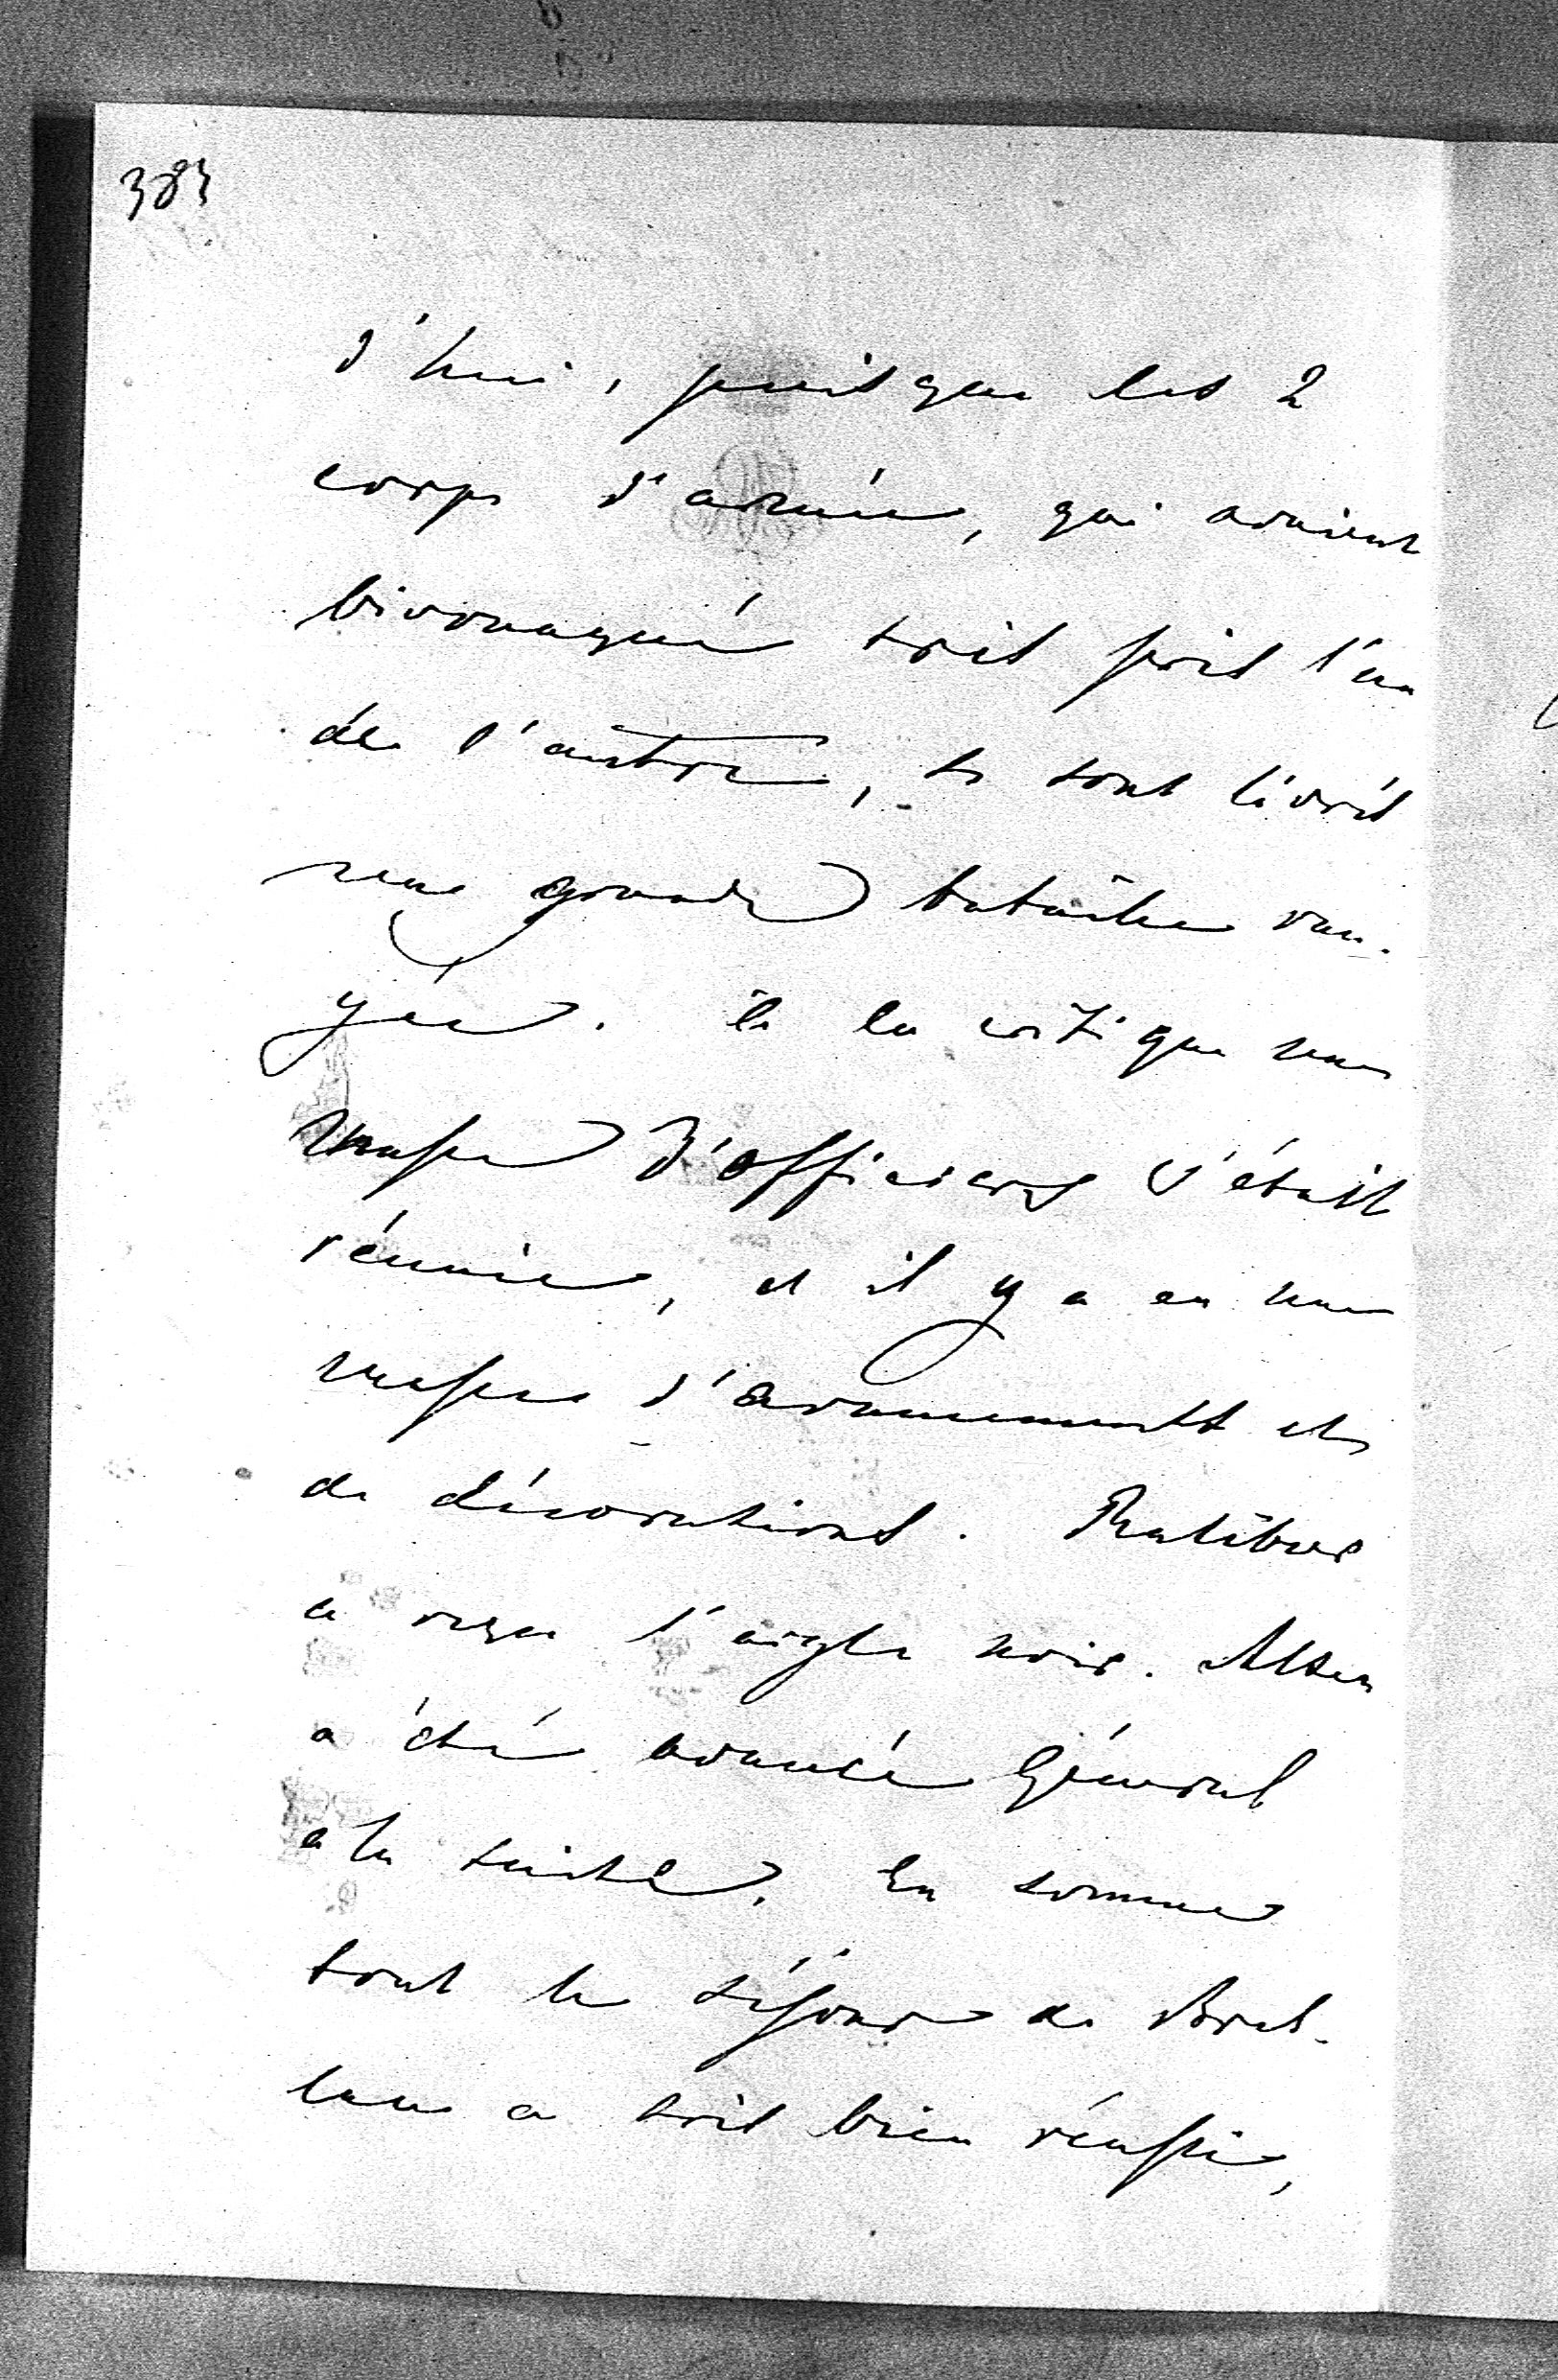 383
d'hui, puisque les 2
corps d'armée, qui avaient
bivouaqué très près l'un
de l'autre, se sont livrés
une grande bataille ran-
gée. à la critique une
masse d'officiers s'était
réunie, et il y a eu une
masse d'avancements et
de décorations. Ratibor
a reçu l'aigle noir. Alten
a été avancé Général
a la suite. En somme
tout le séjour de Bres-
lau a très bien réussi,